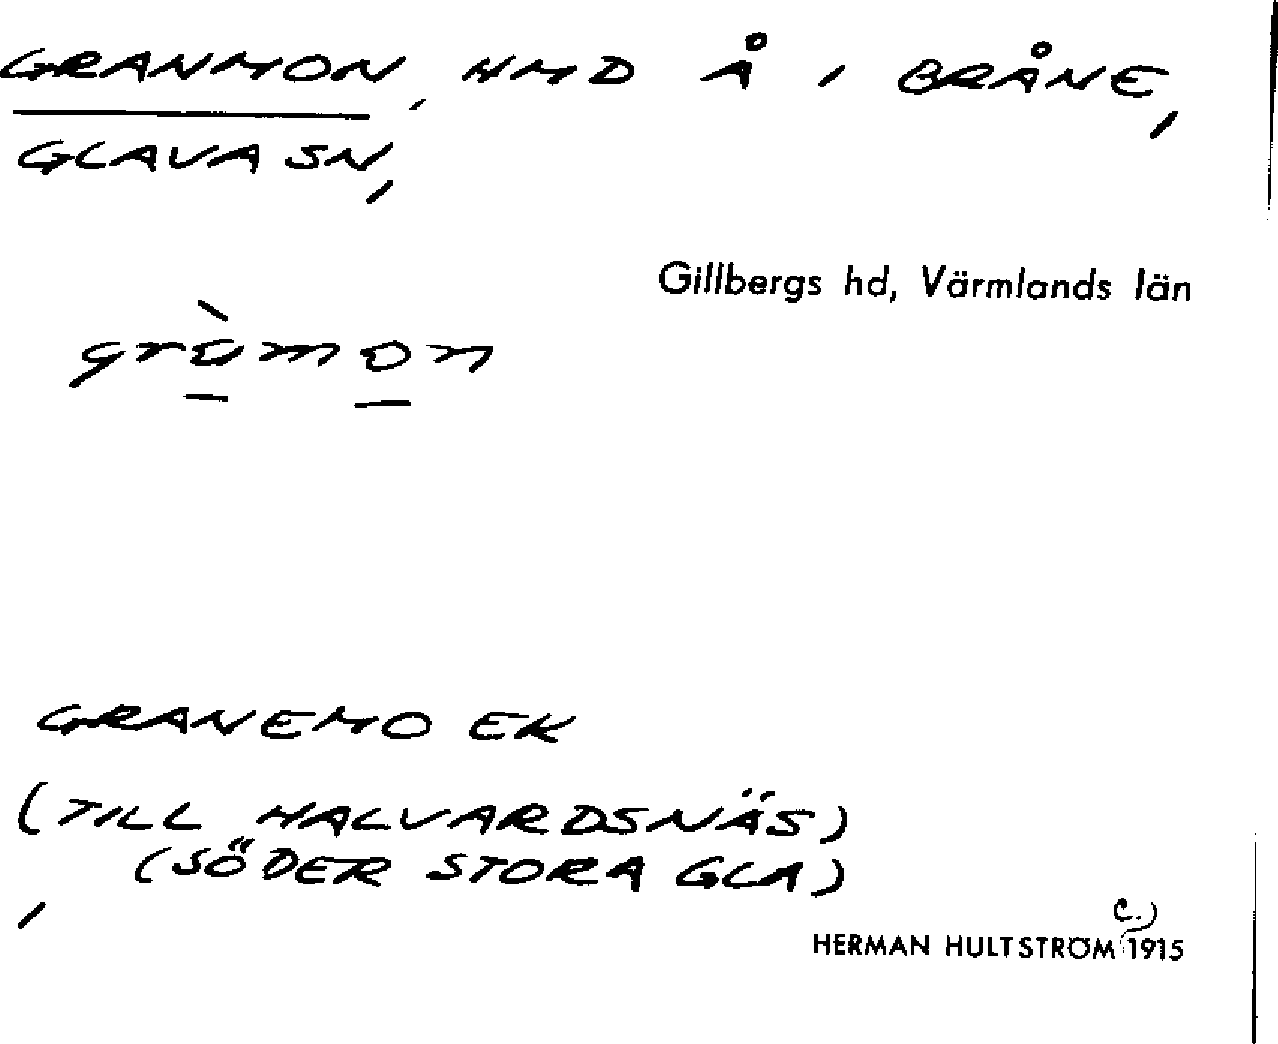 GRANMON, HMD Å I BRÅNE,
GLAVA SN,
Gillbergs hd, Värmlands län
gràmon
GRANEMO EK
(TILL HALVARDSNÄS)
(SÖDER STORA GLA)
HERMAN HULTSTRÖM c.) 1915